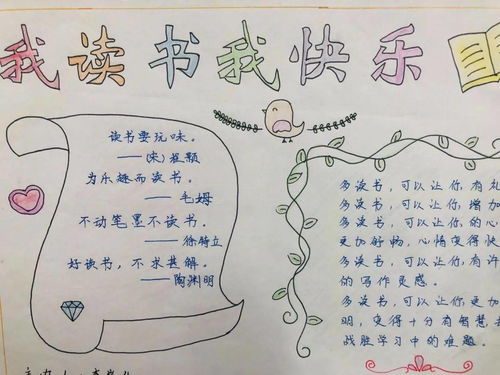 我读书我快乐
读书要玩味。
——(宋)程颢
为乐趣而读书。
——毛姆
不动笔墨不读书。
——徐特立
好读书，不求甚解。
——陶渊明
多读书，可以让你，有礼
多读书，可以让你，增加
多读书，可以让你，的心
更加舒畅，心情变得快
多读书，可以让你，有许
的写作灵感。
多读书，可以让你，更加
明，变得十分有智慧，
战胜学习中的难题。